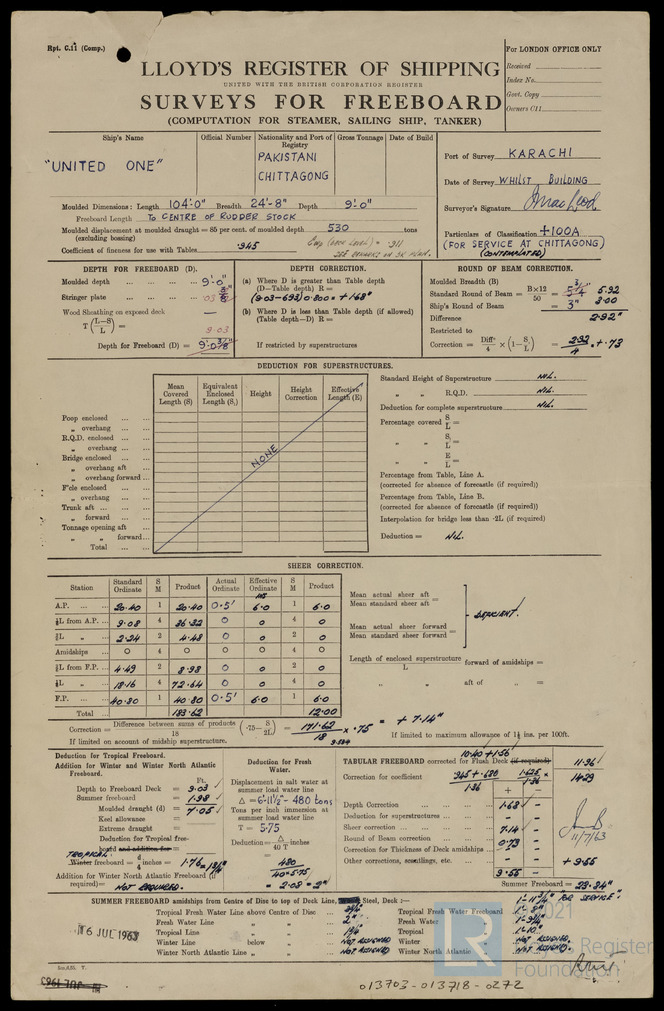 Rpt. C.11 (Comp.)
For LONDON OFFICE ONLY
Received
Index No.
Govt. Copy
Owners C11
LLOYD'S REGISTER OF SHIPPING
UNITED WITH THE BRITISH CORPORATION REGISTER
SURVEYS FOR FREEBOARD
(COMPUTATION FOR STEAMER, SAILING SHIP, TANKER)
Ship's Name Official Number Nationality and Port of Registry Gross Tonnage Date of Build
"UNITED ONE" PAKISTANI CHITTAGONG
Port of Survey KARACHI
Date of Survey WHILST BUILDING
Surveyor's Signature
Particulars of Classification +100A
(FOR SERVICE AT CHITTAGONG)
(CONTEMPLATED)
Moulded Dimensions: Length 104'-0" Breadth 24'-8" Depth 9'-0"
Freeboard Length TO CENTRE OF RUDDER STOCK
Moulded displacement at moulded draught = 85 per cent. of moulded depth 530 tons
(excluding bossing)
Coefficient of fineness for use with Tables .945
DEPTH FOR FREEBOARD (D).
Moulded depth 9'-0"
Stringer plate .03
Wood Sheathing on exposed deck —
T (L-S/L) =
9.03
Depth for Freeboard (D) =
DEPTH CORRECTION.
(a) Where D is greater than Table depth
(D—Table depth) R =
(9.03-6.93)0.800 = +1.68"
(b) Where D is less than Table depth (if allowed)
(Table depth—D) R =
If restricted by superstructures
ROUND OF BEAM CORRECTION.
Moulded Breadth (B)
Standard Round of Beam = B×12/50 = 5.92
Ship's Round of Beam = 3" 3.00
Difference 2.92"
Restricted to
Correction = Diffce/4 × (1 - S1/L) = 2.92/4 = +.73
DEDUCTION FOR SUPERSTRUCTURES.
Mean Covered Length (S) Equivalent Enclosed Length (S1) Height Height Correction Effective Length (E)
Poop enclosed
„ overhang
R.Q.D. enclosed
„ overhang
Bridge enclosed
„ overhang aft
„ overhang forward
F'cle enclosed
„ overhang
Trunk aft
„ forward
Tonnage opening aft
„ „ forward
Total
NONE
Standard Height of Superstructure NIL.
„ „ R.Q.D. NIL.
Deduction for complete superstructure NIL.
Percentage covered S/L =
„ „ S1/L =
„ „ E/L =
Percentage from Table, Line A.
(corrected for absence of forecastle (if required))
Percentage from Table, Line B.
(corrected for absence of forecastle (if required))
Interpolation for bridge less than ·2L (if required)
Deduction = NIL.
SHEER CORRECTION.
Station Standard Ordinate S M Product Actual Ordinate Effective Ordinate S M Product
A.P. 20.40 1 20.40 0.5' 6.0 1 6.0
⅙L from A.P. 9.08 4 36.32 0 0 4 0
⅓L „ 2.24 2 4.48 0 0 2 0
Amidships 0 4 0 0 0 4 0
⅓L from F.P. 4.49 2 8.98 0 0 2 0
⅙L „ 18.16 4 72.64 0 0 4 0
F.P. 40.80 1 40.80 0.5' 6.0 1 6.0
Total 183.62 12.00
Mean actual sheer aft
Mean standard sheer aft =
Mean actual sheer forward
Mean standard sheer forward =
DEFICIENT.
Length of enclosed superstructure/L forward of amidships =
„ „ aft of „ =
Correction = Difference between sums of products/18 (·75 - S/2L) = 171.62/18 × .75 = + 7.14"
If limited on account of midship superstructure.
If limited to maximum allowance of 1½ ins. per 100ft.
Deduction for Tropical Freeboard.
Addition for Winter and Winter North Atlantic Freeboard.
Ft.
Depth to Freeboard Deck = 9.03
Summer freeboard = 1.98
Moulded draught (d) = 7.05
Keel allowance =
Extreme draught =
Deduction for Tropical freeboard and addition for
TROPICAL
Winter freeboard = d/4 inches = 1.76 = 1¾"
Addition for Winter North Atlantic Freeboard (if required)= NOT REQUIRED.
Deduction for Fresh Water.
Displacement in salt water at summer load water line
Δ = 6'-11½" - 480 tons
Tons per inch immersion at summer load water line
T = 5.75
Deduction = Δ/40 T inches
= 480/40×5.75
= 2.08 = 2"
TABULAR FREEBOARD corrected for Flush Deck (if required) 10.40+1.56 11.96
Correction for coefficient .945+.680/1.36 1.625/1.36 × 14.29
+ -
Depth Correction 1.68 -
Deduction for superstructures - -
Sheer correction 7.14 -
Round of Beam correction 0.73 -
Correction for Thickness of Deck amidships - -
Other corrections, scantlings, etc. - -
9.55 -
+ 9.55
Summer Freeboard = 23.84"
11/7/63
SUMMER FREEBOARD amidships from Centre of Disc to top of Deck Line, Steel, Deck :— 1'-11¾" "FOR SERVICE".
Tropical Fresh Water Line above Centre of Disc 3¾"
Fresh Water Line „ „ 2"
Tropical Line „ „ 1¾"
Winter Line below „ NOT ASSIGNED
Winter North Atlantic Line „ „ NOT ASSIGNED
Tropical Fresh Water Freeboard 1'-8"
Fresh Water „ 1'-9¾"
Tropical „ 1'-10"
Winter „ NOT ASSIGNED.
Winter North Atlantic „ NOT ASSIGNED.
16 JUL 1963
2021
Lloyd's Register
Foundation
LR
013703-013718-0272